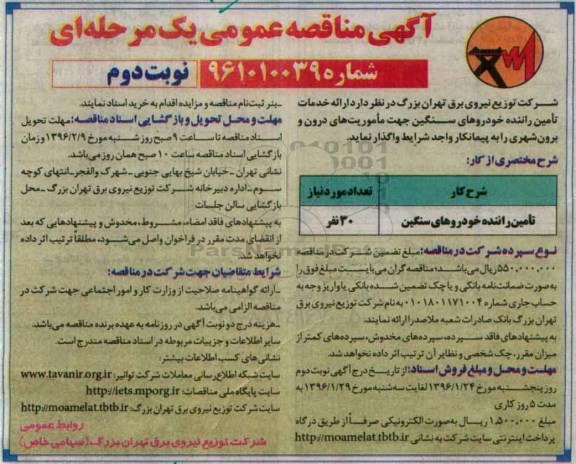 آگهی مناقصه عمومی یک مرحله‌ای
شماره ۹۶۱۰۱۰۰۳۹ نوبت دوم
شرکت توزیع نیروی برق تهران بزرگ در نظر دارد ارائه خدمات
تأمین راننده خودروهای سنگین جهت مأموریت‌های درون و
برون‌شهری را به پیمانکار واجد شرایط واگذار نماید.
شرح مختصری از کار:
شرح کار تعداد مورد نیاز
تأمین راننده خودروهای سنگین ۳۰ نفر
نوع سپرده شرکت در مناقصه: مبلغ تضمین شرکت در مناقصه
۵۵۰,۰۰۰,۰۰۰ ریال می‌باشد؛ مناقصه گران می‌بایست مبلغ فوق را
به صورت ضمانت‌نامه بانکی و یا چک تضمین شده بانکی یا واریز وجه به
حساب جاری شماره ۰۱۰۱۸۰۱۱۷۱۰۰۴ به نام شرکت توزیع نیروی برق
تهران بزرگ بانک صادرات شعبه ملاصدرا ارائه نمایند.
به پیشنهادهای فاقد سپرده، سپرده‌های مخدوش، سپرده‌های کمتر از
میزان مقرر، چک شخصی و نظایر آن ترتیب اثر داده نخواهد شد.
مهلت و محل و مبلغ فروش اسناد: از تاریخ درج آگهی نوبت دوم
روز پنجشنبه مورخ ۱۳۹۶/۱/۲۴ لغایت سه‌شنبه مورخ ۱۳۹۶/۱/۲۹ به
مدت ۵ روز کاری
مبلغ ۱,۵۰۰,۰۰۰ ریال به‌صورت الکترونیکی صرفاً از طریق درگاه
پرداخت اینترنتی سایت شرکت به نشانی http://moamelat.tbtb.ir
-بنر ثبت‌نام مناقصه و مزایده اقدام به خرید اسناد نمایند.
مهلت و محل تحویل و بازگشایی اسناد مناقصه: مهلت تحویل
اسناد مناقصه تا ساعت ۹ صبح روز شنبه مورخ ۱۳۹۶/۲/۹ و زمان
بازگشایی اسناد مناقصه ساعت ۱۰ صبح همان روز می‌باشد.
نشانی تهران -خیابان شیخ بهایی جنوبی -شهرک والفجر-انتهای کوچه
سوم -اداره دبیرخانه شرکت توزیع نیروی برق تهران بزرگ -محل
بازگشایی سالن جلسات
به پیشنهادهای فاقد امضاء، مشروط، مخدوش و پیشنهادهایی که بعد
از انقضای مدت مقرر در فراخوان واصل می‌شود، مطلقاً ترتیب اثر داده
نخواهد شد.
شرایط متقاضیان جهت شرکت در مناقصه:
-ارائه گواهینامه صلاحیت از وزارت کار و امور اجتماعی جهت شرکت در
مناقصه الزامی می‌باشد.
-هزینه درج دو نوبت آگهی در روزنامه به عهده برنده مناقصه می‌باشد.
سایر اطلاعات و جزییات مربوطه در اسناد مناقصه مندرج است.
نشانی‌های کسب اطلاعات بیشتر:
سایت شبکه اطلاع‌رسانی معاملات شرکت توانیر: www.tavanir.org.ir
سایت پایگاه ملی مناقصات: http://iets.mporg.ir
سایت شرکت توزیع نیروی برق تهران بزرگ: http://moamelat.tbtb.ir
روابط عمومی
شرکت توزیع نیروی برق تهران بزرگ (سهامی خاص)